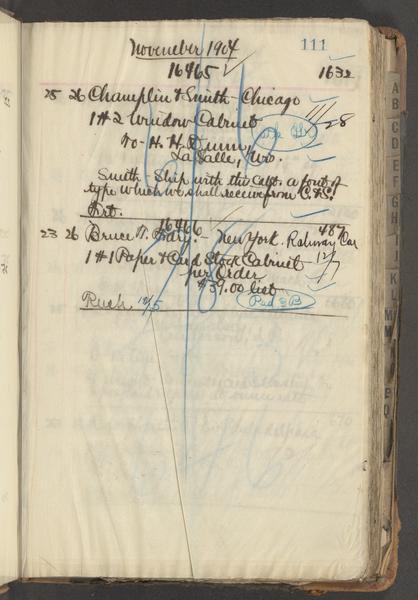 November 1904 111
16465 1632
25 26 Champlin & Smith - Chicago
1 #2 Window Cabinet 28
To - H. H. Dunn,
La Salle,
Smith - Ship with this Cabt. a font of
type which we shall receive from C. & S.
16466 487
23 26 Bruce - New York. Rahway Car
1 #1 Paper & Card Stock Cabinet 12/7
per Order
$39.00 list
Rush 12/5
A
B
C
D
E
F
G
H
I
J
K
L
M